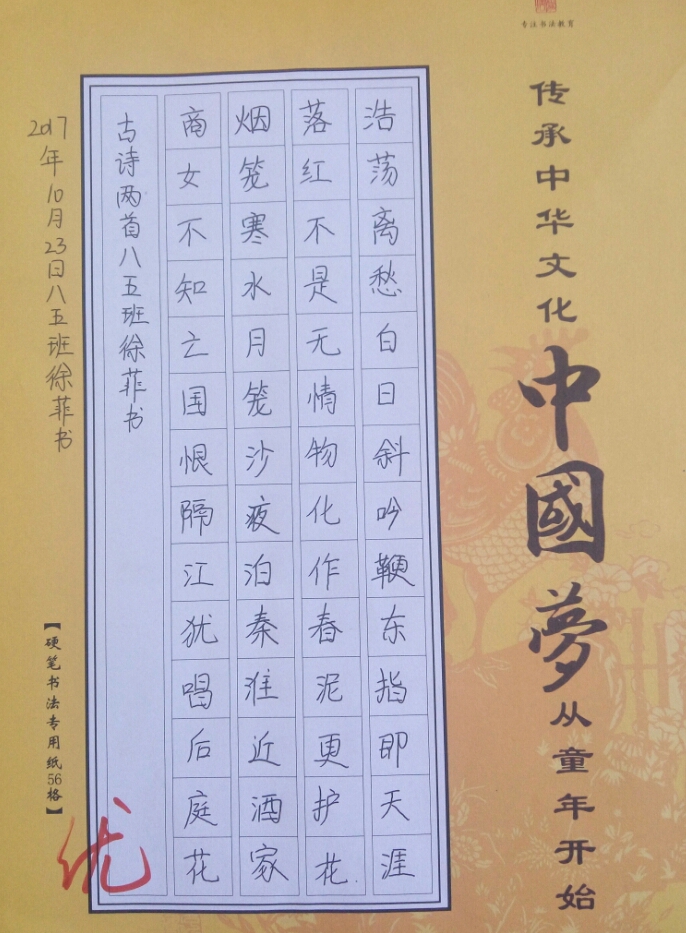 专注书法教育
传承中华文化 中國夢 从童年开始
浩荡离愁白日斜吟鞭东指即天涯
落红不是无情物化作春泥更护花
烟笼寒水月笼沙夜泊秦淮近酒家
商女不知亡国恨隔江犹唱后庭花
古诗两首八五班徐菲书
2017年10月23日八五班徐菲书
【硬笔书法专用纸56格】
优